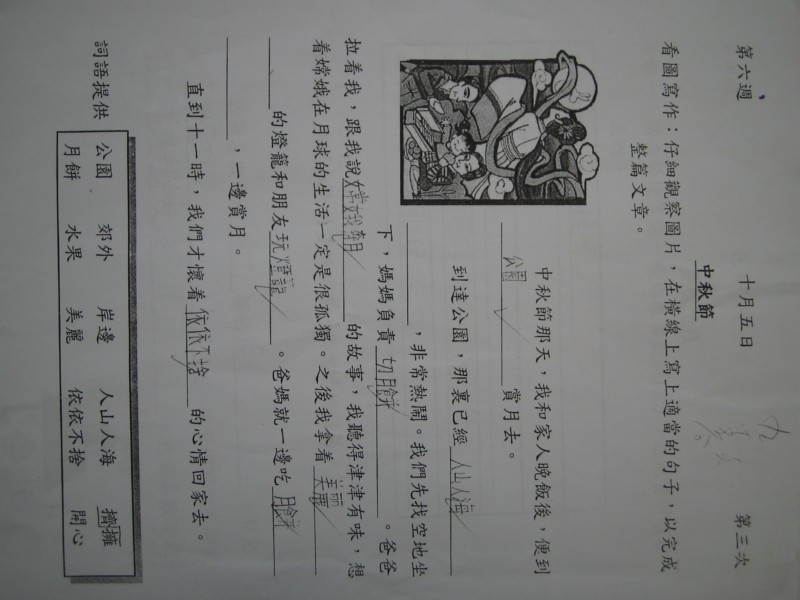 第六週 十月五日 第三次
中秋節
看圖寫作：仔細觀察圖片，在橫線上寫上適當的句子，以完成
整篇文章。
中秋節那天，我和家人晚飯後，便到
公園 賞月去。
到達公園，那裏已經人山人海
，非常熱鬧。我們先找空地坐
下，媽媽負責切月餅。爸爸
拉着我，跟我說嫦娥奔月的故事，我聽得津津有味，想
着嫦娥在月球的生活一定是很孤獨。之後我拿着美麗
的燈籠和朋友玩燈籠。爸媽就一邊吃月餅
，一邊賞月。
直到十一時，我們才懷着依依不捨的心情回家去。
詞語提供
公園 郊外 岸邊 人山人海 擠擁
月餅 水果 美麗 依依不捨 開心